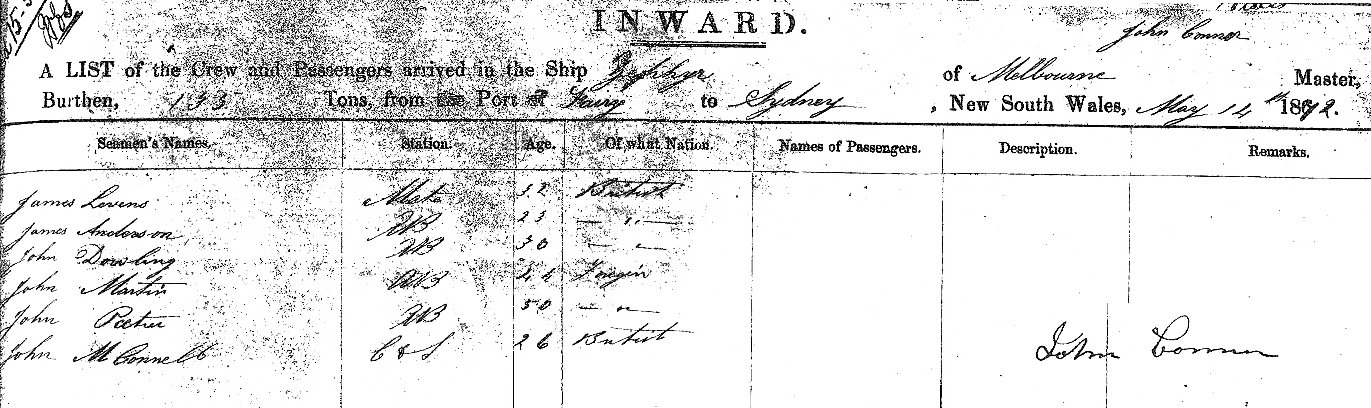 INWARD.
John Connor
A LIST of the Crew and Passengers arrived in the Ship Zephyr of Melbourne Master,
Burthen, 133 Tons, from the Port of to Sydney, New South Wales, May 14th 1872.
Seamen's Names. Station. Age. Of what Nation. Names of Passengers. Description. Remarks.
James Levens Mate 32 British
James Anderson AB 23 — " —
John Dowling AB 30 — " —
John Martin AB Foregin
John AB 50 — " —
John McConnell C & S 26 British
John Connor